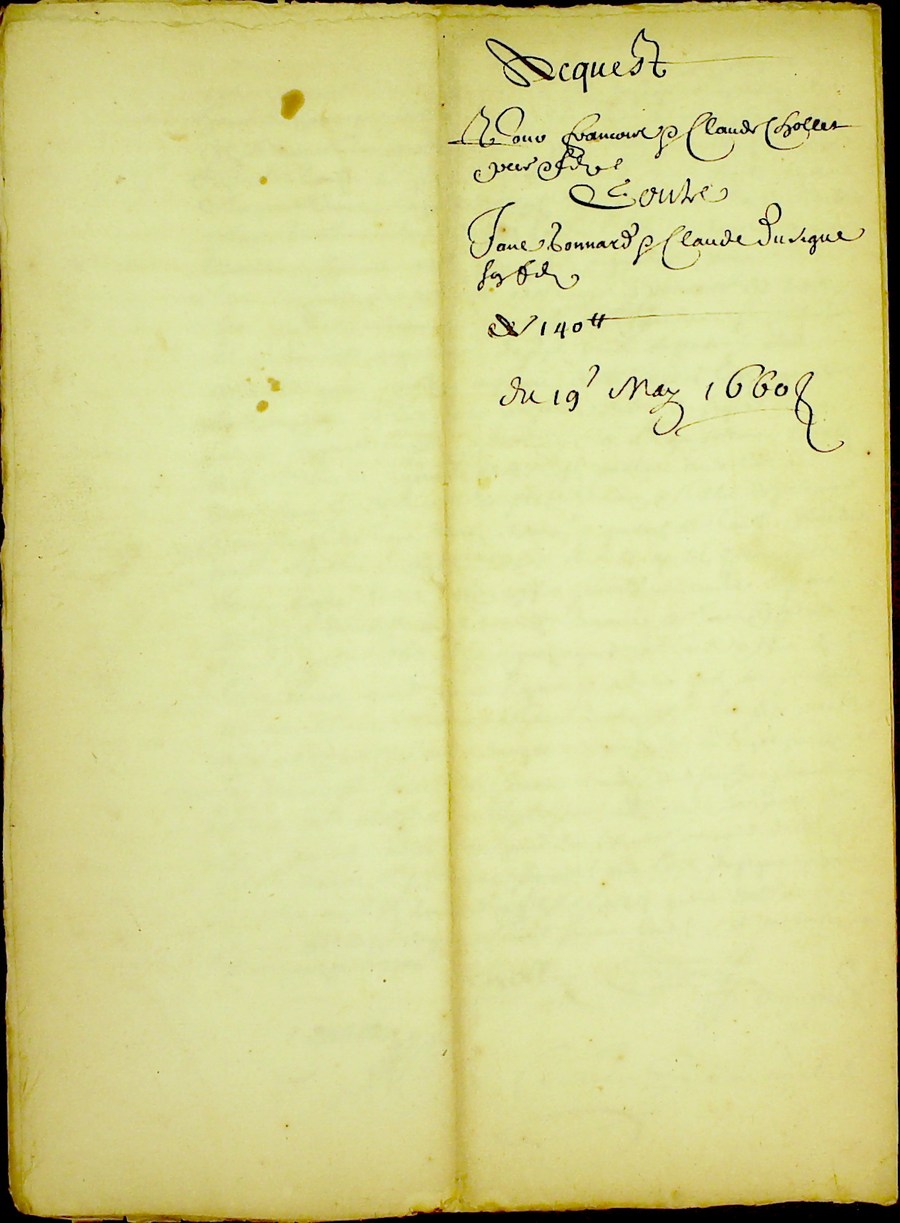 Acquest
Pour Francois & Claude Chollet
pere & filz
Contre
Jane Bonnard & Claude Duvigne
de 140 tt
du 19e May 1660